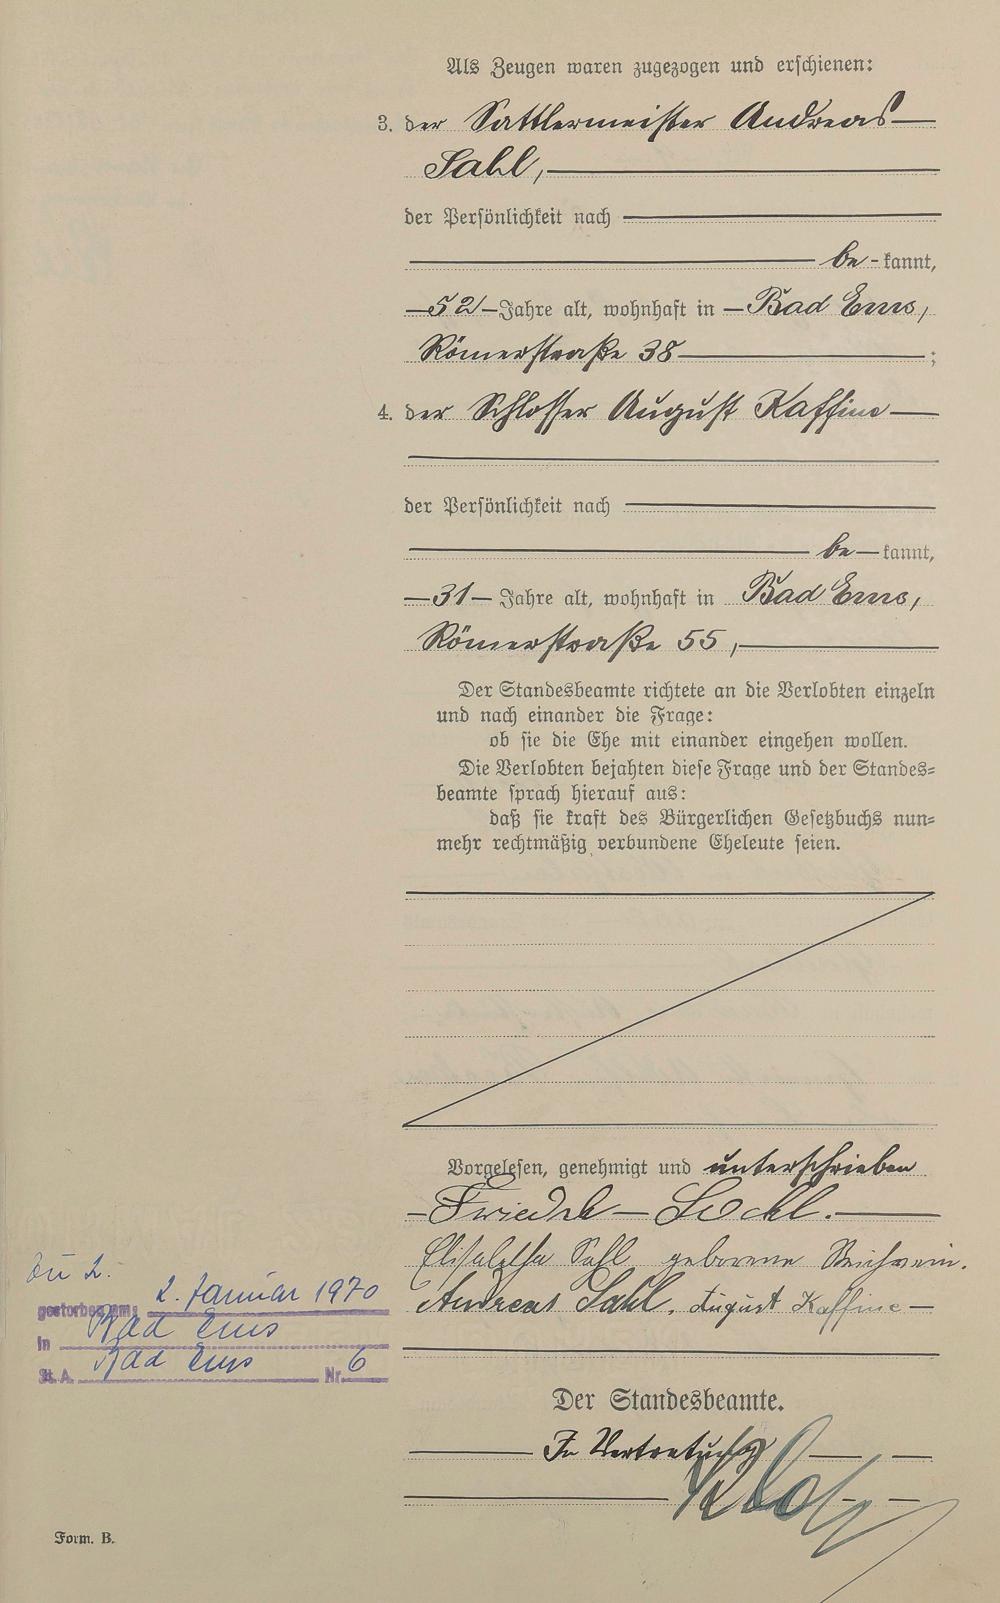 Als Zeugen waren zugezogen und erschienen:
3. der Sattlermeister Andreas
Sahl,
der Persönlichkeit nach
be-kannt,
52 Jahre alt, wohnhaft in Bad Ems,
Römerstraße 38 ;
4. der Schlosser August Kaffine
der Persönlichkeit nach
be kannt,
31 Jahre alt, wohnhaft in Bad Ems,
Römerstraße 55,
Der Standesbeamte richtete an die Verlobten einzeln
und nach einander die Frage:
ob sie die Ehe mit einander eingehen wollen.
Die Verlobten bejahten diese Frage und der Standes=
beamte sprach hierauf aus:
daß sie kraft des Bürgerlichen Gesetzbuchs nun=
mehr rechtmäßig verbundene Eheleute seien.
Vorgelesen, genehmigt und unterschrieben
Friedrch
Elisabetha Sahl geborene Reichwein.
Andreas Sahl. August Kaffine
Zu 2.
gestorben am: 2. Januar 1970
in Bad Ems
St. A. Bad Ems Nr. 6
Der Standesbeamte.
In Vertretung
Form. B.